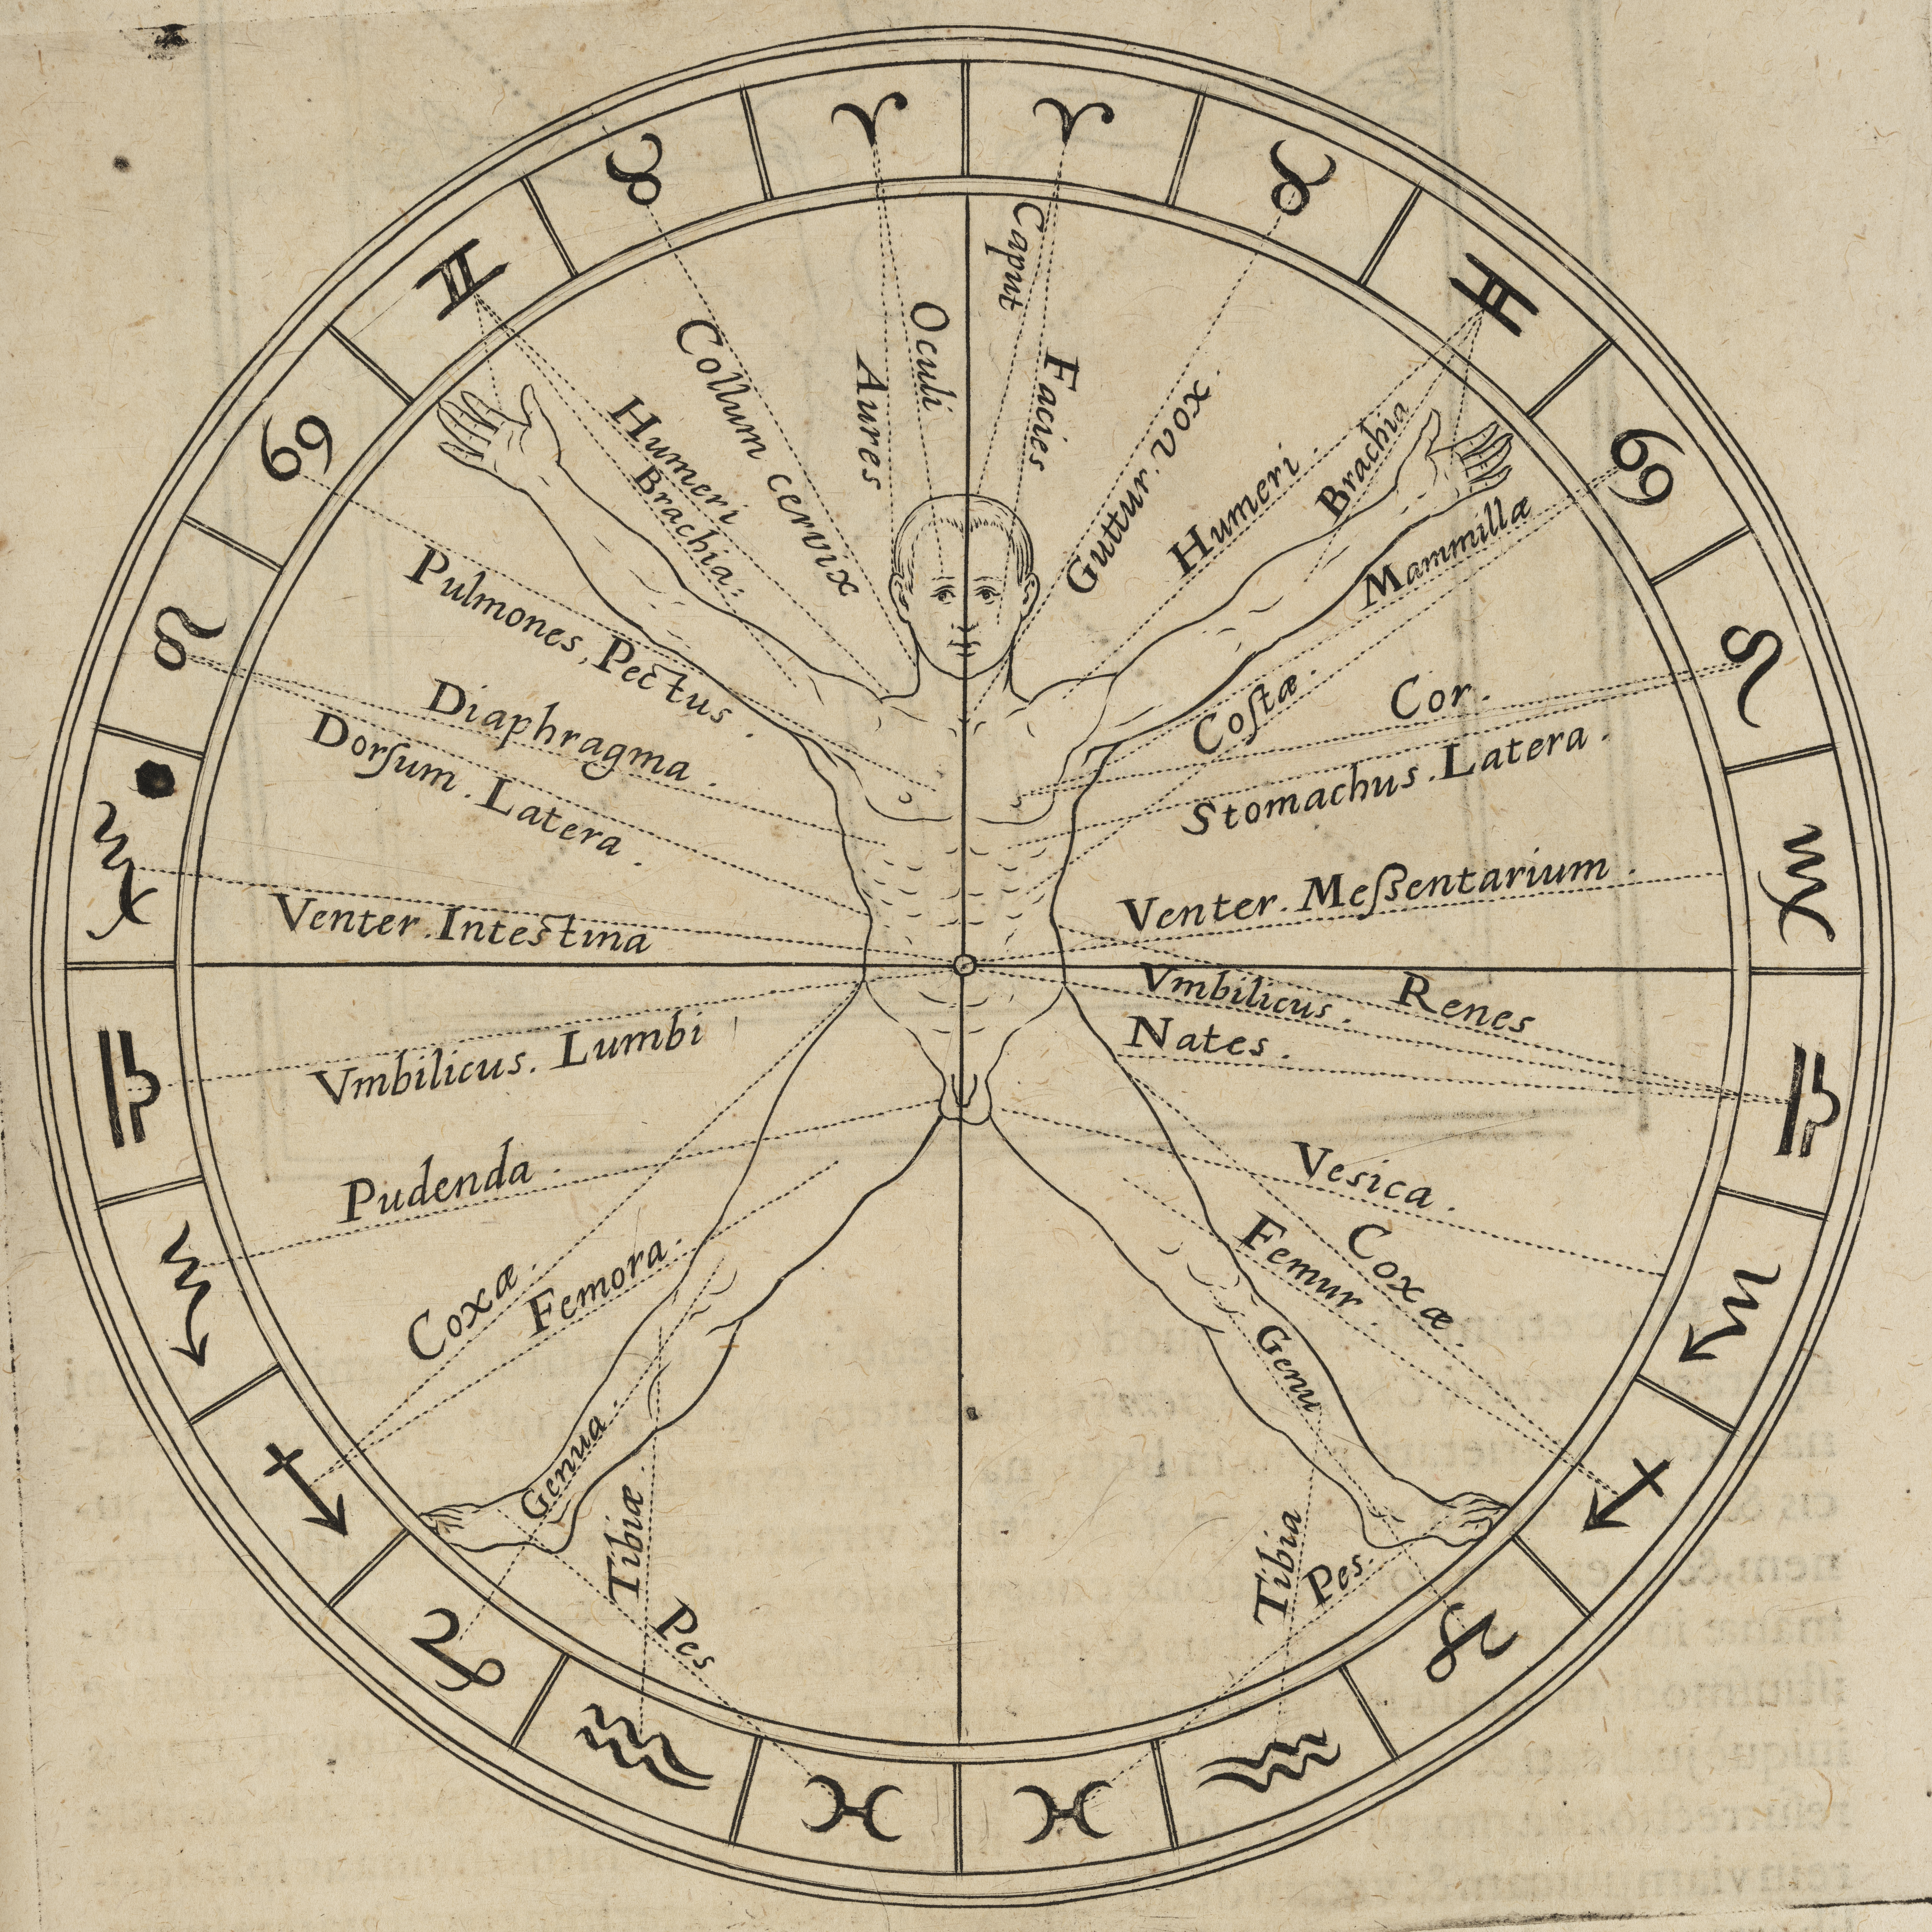 ♈ ♈
♉ ♉
♊ ♊
♋ ♋
♌ ♌
♍ ♍
♎ ♎
♏ ♏
♐ ♐
♑ ♑
♒ ♒
♓ ♓
Caput
Oculi
Facies
Aures
Collum cervix
Guttur. vox.
Humeri
Brachia.
Humeri.
Brachia
Mammillæ
Pulmones, Pectus.
Coſtæ.
Cor.
Diaphragma.
Dorſum. Latera.
Stomachus. Latera.
Venter. Intestina
Venter. Meſsentarium.
Vmbilicus. Lumbi
Vmbilicus.
Renes
Nates.
Pudenda.
Vesica.
Coxæ.
Femora.
Femur.
Coxæ.
Genua.
Genu
Tibiæ.
Tibia
Pes
Pes.